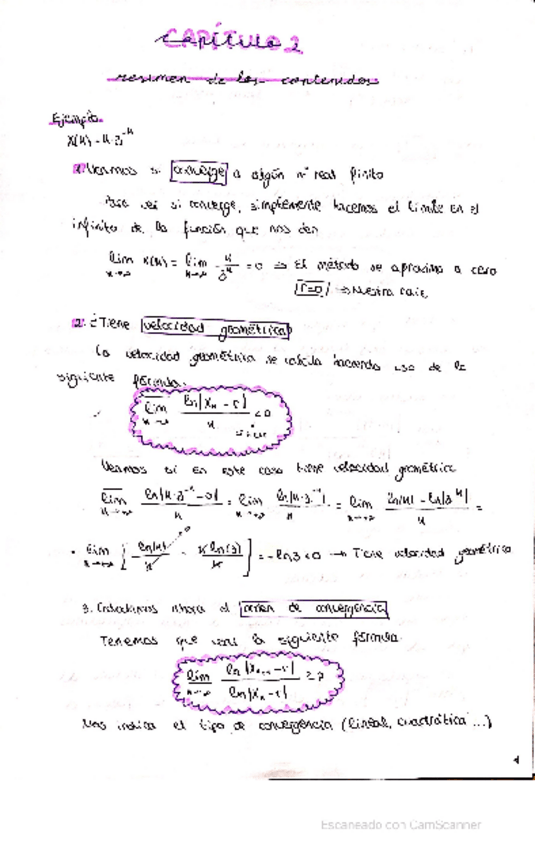 CAPÍTULO 2
resumen de los contenidos
Ejemplo
x(n) = n·3⁻ⁿ
1. Veamos si converge a algún nº real finito
Para ver si converge, simplemente hacemos el límite en el
infinito de la función que nos den
lim n→∞ x(n) = lim n→∞ n/3ⁿ = 0 ⇒ El método se aproxima a cero
r=0 → Nuestra raíz
2. ¿Tiene velocidad geométrica?
La velocidad geométrica se calcula haciendo uso de la
siguiente fórmula.
lim n→∞ ln|xₙ - r| / n < 0
Veamos si en este caso tiene velocidad geométrica
lim n→∞ ln|n·3⁻ⁿ - 0| / n = lim n→∞ ln|n·3⁻ⁿ| / n = lim n→∞ ln|n| - ln|3ⁿ| / n =
= lim n→∞ [ ln|n| / n - n ln(3) / n ] = -ln 3 < 0 → Tiene velocidad geométrica
3. Calculamos ahora el orden de convergencia
Tenemos que usar la siguiente fórmula.
lim n→∞ ln|xₙ₊₁ - r| / ln|xₙ - r|
Nos indica el tipo de convergencia (lineal, cuadrática ...)
1
Escaneado con CamScanner